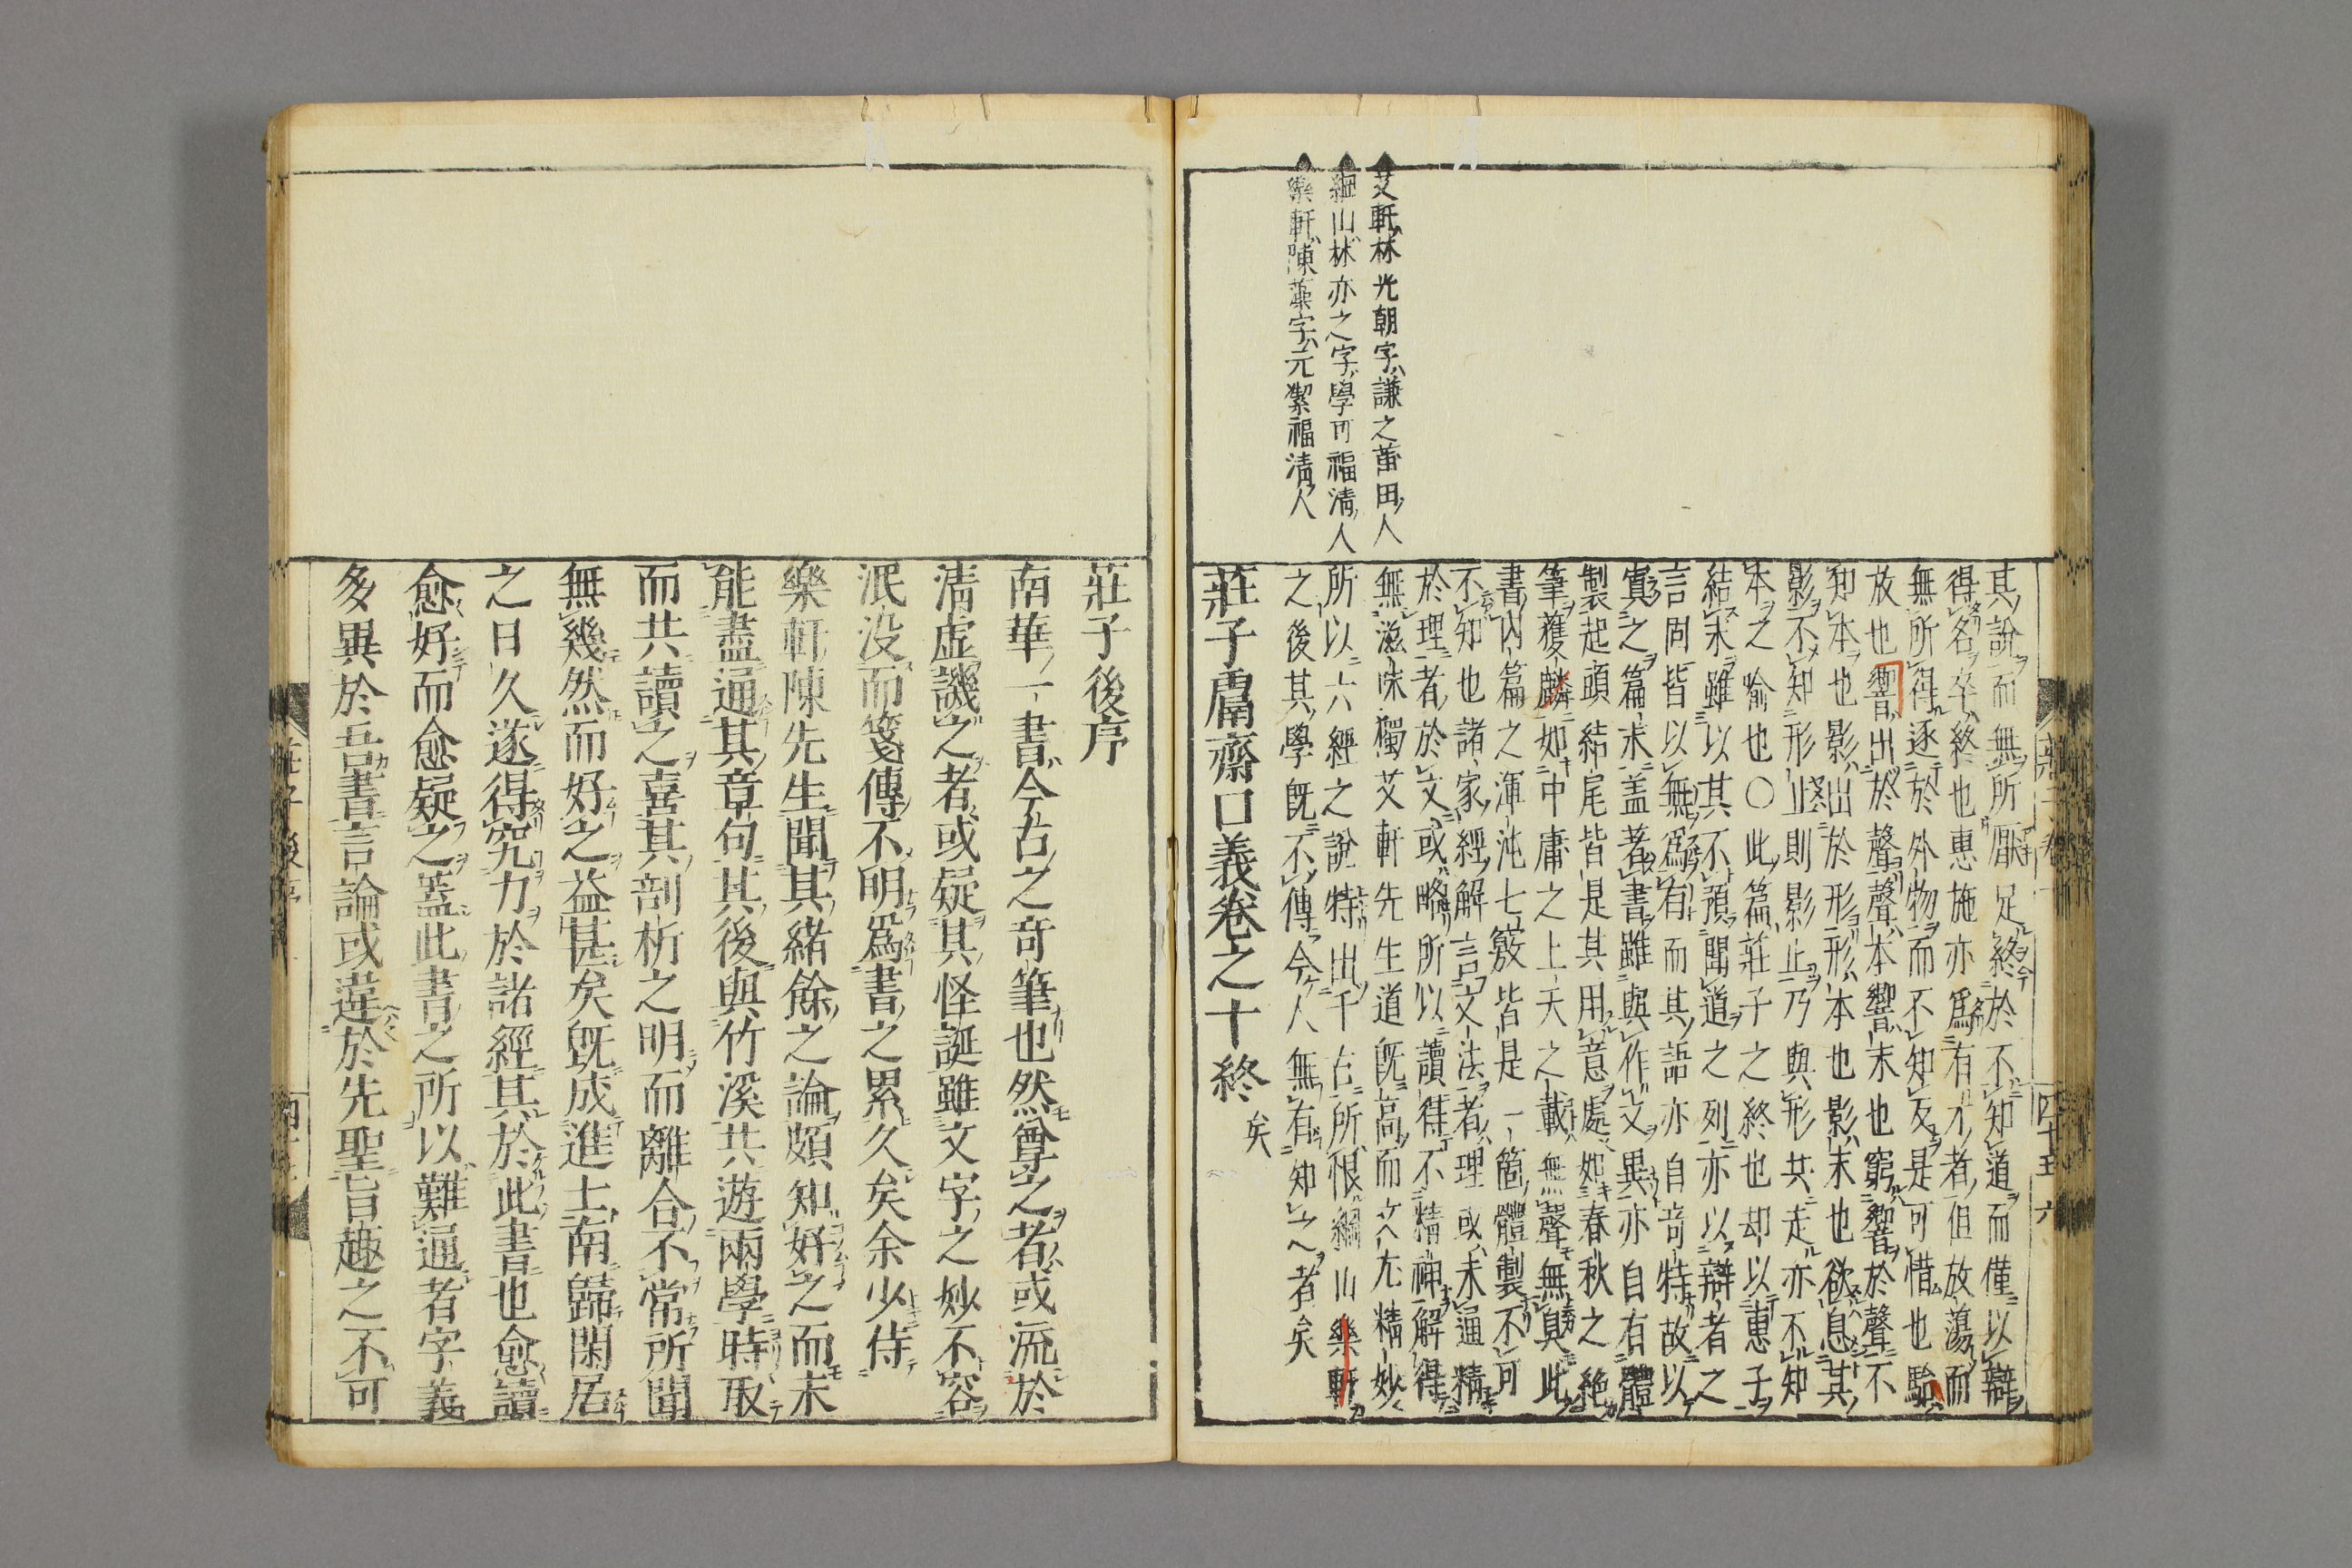 艾軒林光朝字謙之莆田人
綱山林亦之字學可福清人
樂軒陳藻字元潔福清人
其說而無所厭足終於不知道而僅以辯
得名卒終也惠施亦爲有才者但放蕩而
無所得逐於外物而不知反是可惜也駘
放也響出於聲聲本響末也窮響於聲不
知本也影出於形形本也影末也欲息其
影不知形止則影止乃與形共走亦不知
本之喻也〇此篇莊子之終也却以惠子
結末雖以其不預聞道之列亦以辯者之
言固皆以無爲有而其語亦自奇特故以
寘之篇末蓋著書雖與作文異亦自有體
製起頭結尾皆是其用意處如春秋之絶
筆獲麟如中庸之上天之載無聲無臭此
書內篇之渾沌七竅皆是一箇體製不可
不知也諸家經解言文法者理或未通精
於理者於文或略所以讀得不精神解得
無滋味獨艾軒先生道既高而文尤精妙
所以六經之說特出千古所恨綱山樂軒
之後其學既不傳今人無有知之者矣
莊子鬳齋口義卷之十終
矣
莊子後序
南華一書今古之奇筆也然尊之者或流於
清虛譏之者或疑其怪誕雖文字之妙不容
泯没而箋傳不明爲書之累久矣余少侍
樂軒陳先生聞其緒餘之論頗知好之而未
能盡通其章句其後與竹溪共遊兩學時取
而共讀之喜其剖析之明而離合不常所聞
無幾然而好之益甚矣既成進士南歸閑居
之日久遂得究力於諸經其於此書也愈讀
愈好而愈疑之蓋此書之所以難通者字義
多異於吾書言論或違於先聖旨趣之不可